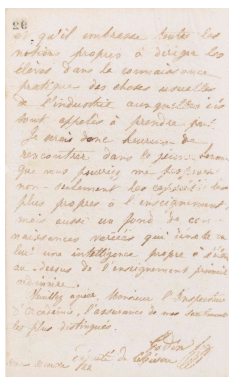 20
et qu'il embrasse toutes les
notions propres à diriger les
élèves dans la connaissance
pratique des choses usuelles
de l'industrie auxquelles ils
sont appelés à prendre part.
Je serais donc heureux de
rencontrer dans la personne
que vous pourriez me proposer
non-seulement les capacités les
plus propres à l'enseignement,
mais aussi un fond de con-
naissances variées qui
lui une intelligence propre à
au-dessus de l'enseignement primaire
Veuillez agréer, Monsieur l'Inspecteur
d'Académie, l'assurance de mes sentiments
les plus distingués.